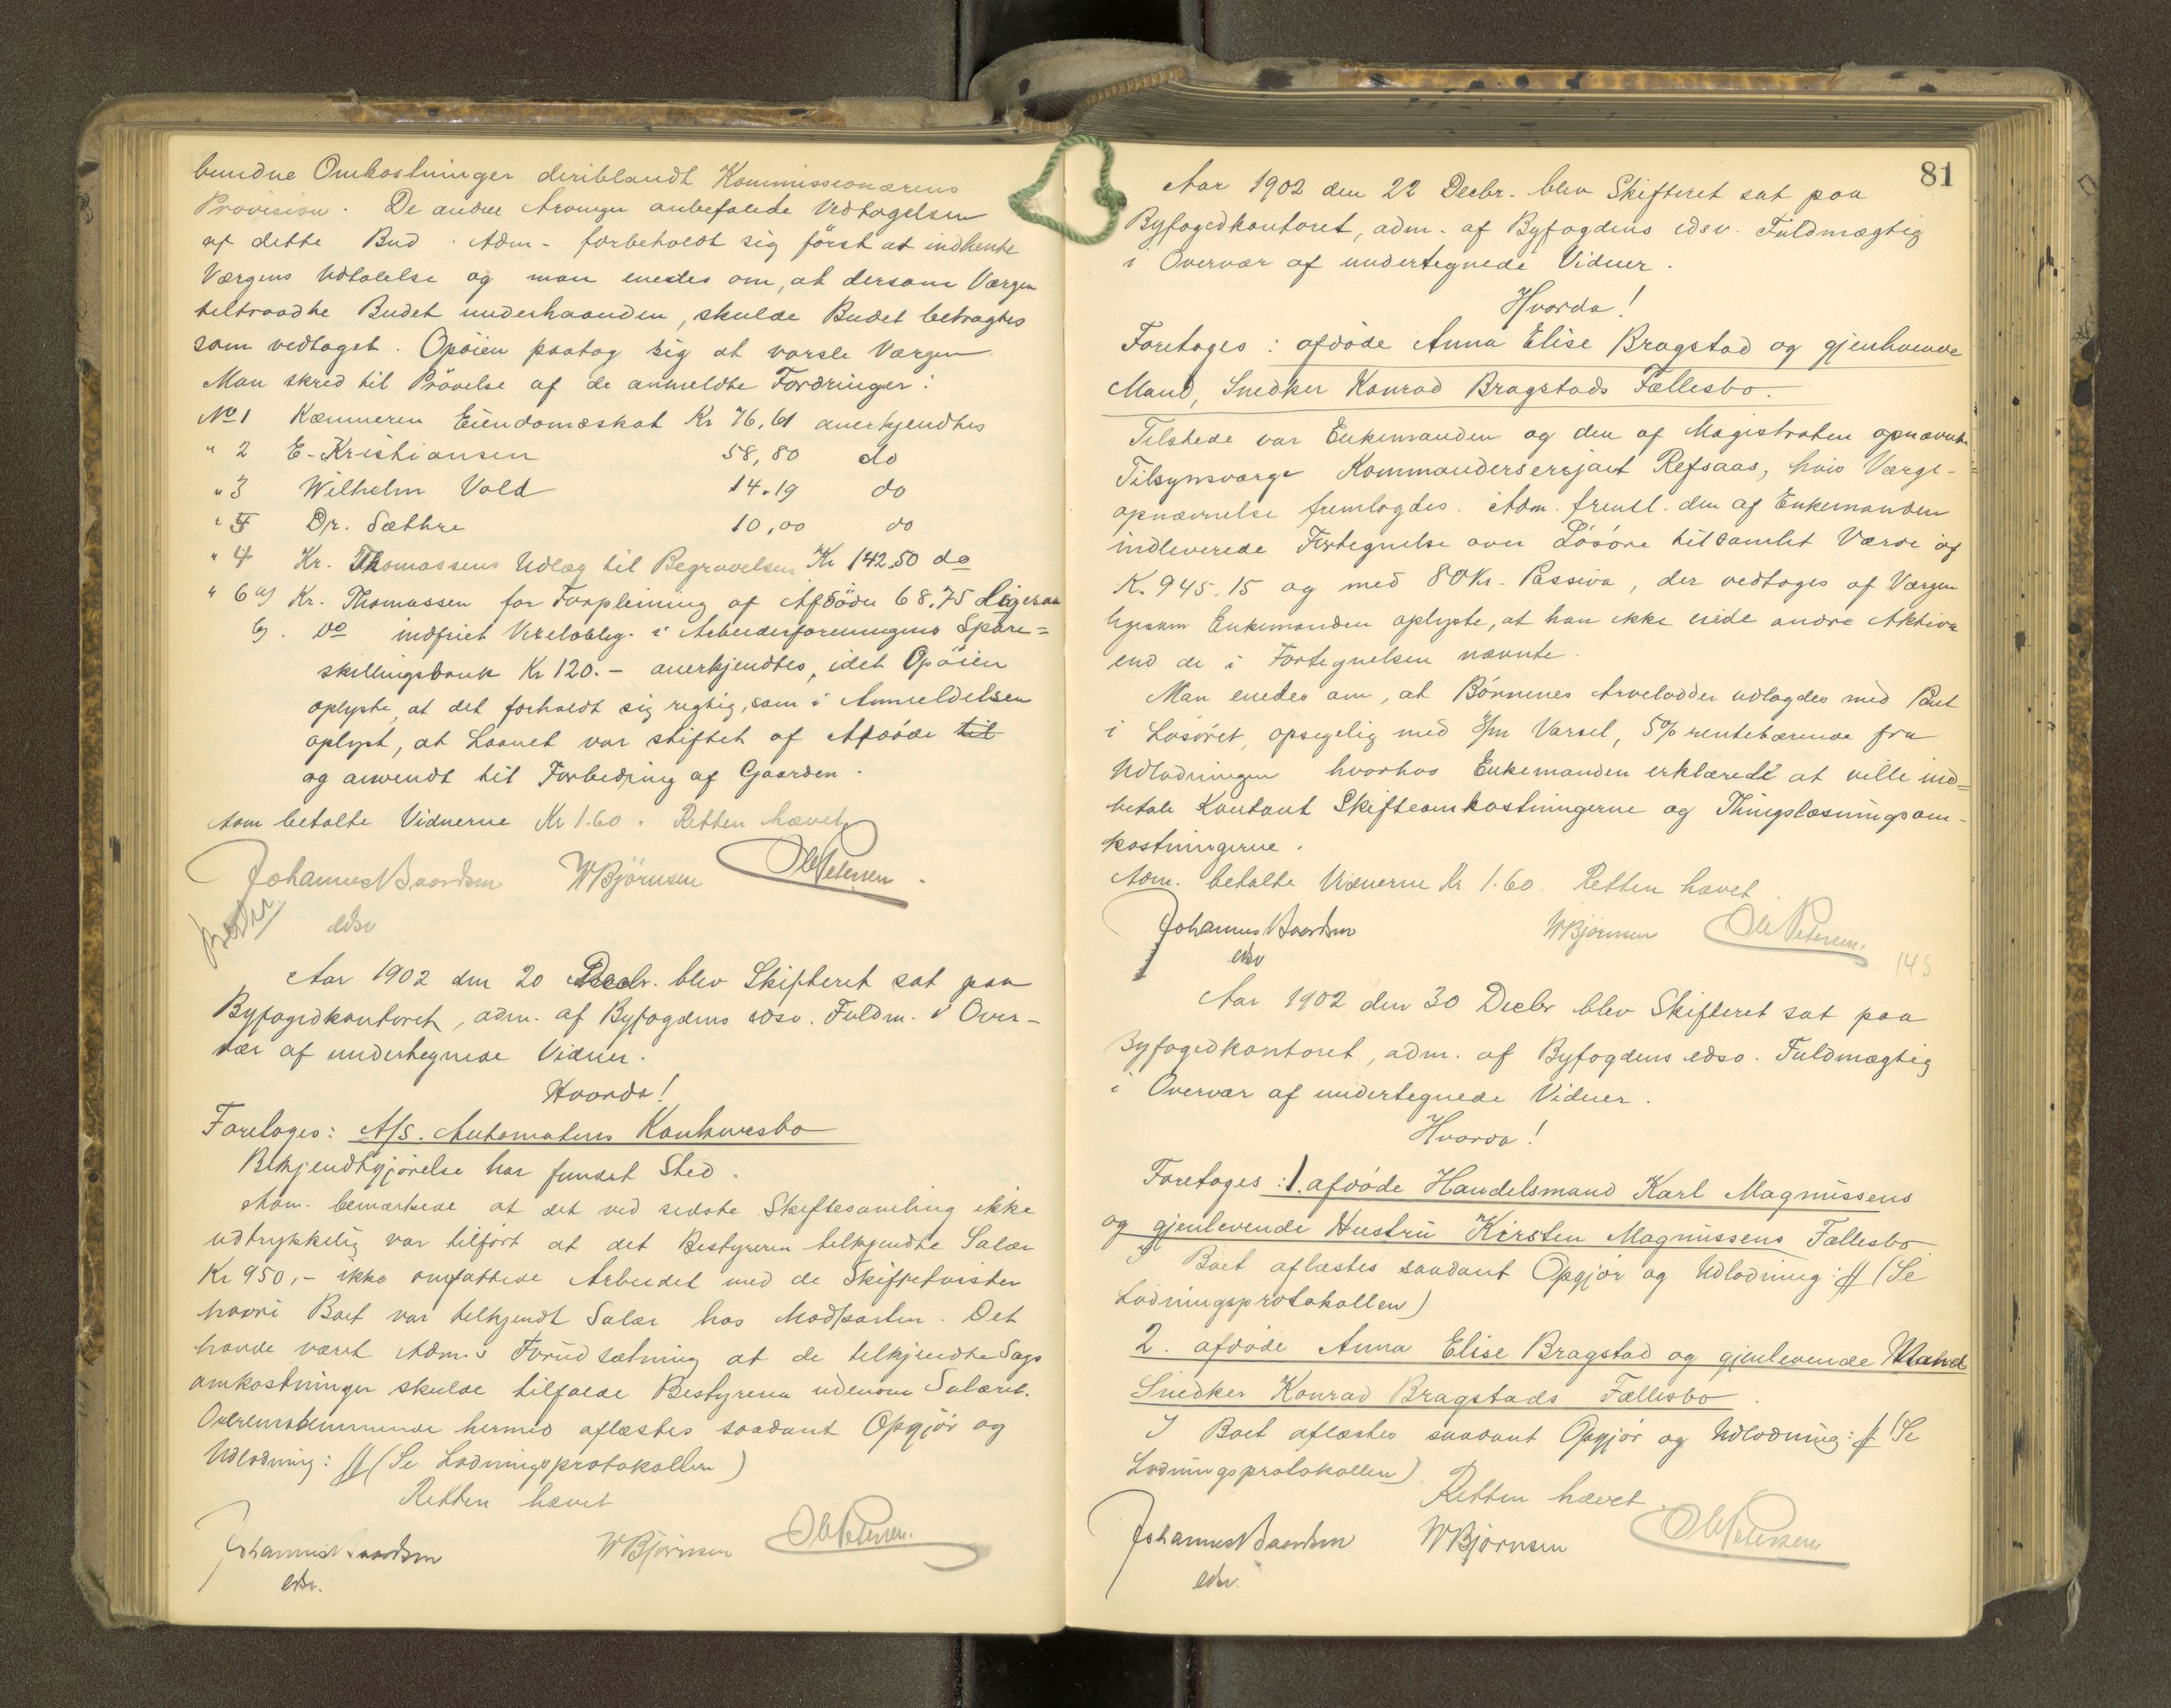 bundne Omkostninger deriblandt Kommissionærens
Provision. De andre Arvinger anbefalede Vedtagelsen
af dette Bud. Adm. forbeholdt sig först at indhente
Værgens Udtalelse og man enedes om, at dersom Værgen
tiltraadte Budet underhaanden, skulde Budet betragtes
som vedtaget. Opöien paatog sig at varsle Værgen.
Man skred til Prövelse af de anmeldte Fordringer:
No 1 Kæmneren Eiendomsskat Kr 76,61 anerkjendtes
" 2 E. Kristiansen 58,80 do
" 3 Wilhelm Vold 14.19 do
" 5 Dr. Sæthre 10,00 do
" 4 Kr. Thomassens Udlæg til Begravelsen Kr 142.50 do
" 6 a) Kr. Thomassen for Forpleining af Afdöde 68.75 Ligesaa
b). Do indfriet Vexeloblig. i Arbeiderforeningens Spare=
skillingsbank Kr 120.- anerkjendtes, idet Opöien
oplyste, at det forholdt sig rigtig, som i Anmeldelsen
oplyst, at Laanet var stiftet af Afdöde til
og anvendt til Forbedring af Gaarden.
Adm betalte Vidnerne Kr 1.60. Retten hævet
Johannes Baardsen WBjörnsen Ole Petersen
edsv
Aar 1902 den 20 Decbr. blev Skifteret sat paa
Byfogedkontoret, adm. af Byfogdens edsv. Fuldm. i Over-
vær af undertegnede Vidner.
Hvorda!
Foretoges: A/S. Automatens Konkursbo
Bekjendtgjörelse har fundet Sted.
Adm. bemærkede at det ved sidste Skiftesamling ikke
udtrykkelig var tilfört at det Bestyreren tilkjendte Salær
Kr 950,- ikke omfattede Arbeidet med de Skiftetvister
hvori Boet var tilkjendt Salær hos Modparten. Det
havde været Adm.s Forudsætning at de tilkjendte Sags
omkostninger skulde tilfalde Bestyreren udenom Salæret.
Overensstemmende hermed aflæstes saadant Opgjör og
Udlodning: // (Se Lodningsprotokollen)
Retten hævet
Johannes Baardsen WBjörnsen Ole Petersen.
edsv.
81
Aar 1902 den 22 Decbr. blev Skifteret sat paa
Byfogedkontoret, adm. af Byfogdens edsv. Fuldmægtig
i Overvær af undertegnede Vidner.
Hvorda!
Foretoges: afdöde Anna Elise Bragstad og gjenlevende
Mand, Snedker Konrad Bragstads Fællesbo.
Tilstede var Enkemanden og den af Magistraten opnævnte
Tilsynsværge Kommandersersjant Refsaas, hvis Værge-
opnævnelse fremlagdes. Adm. freml. den af Enkemanden
indleverede Fortegnelse over Lösöre til samlet Værdi af
K. 945.15 og med 80 Kr. Passiva, der vedtoges af Værgen
ligesom Enkemanden oplyste, at han ikke eiede andre Aktiva
end de i Fortegnelsen nævnte.
Man enedes om, at Börnenes Arvelodder udlagdes med Pant
i Lösöret, opsigelig med 3/m Varsel, 5% rentebærende fra
Udlodningen hvorhos Enkemanden erklærede at ville ind=
betale Kontant Skifteomkostningerne og Thinglæsningsom-
kostningerne.
Adm. betalte Vidnerne Kr 1.60. Retten hævet
Johannes Baardsen WBjörnsen Ole Petersen.
edsv
145
Aar 1902 den 30 Decbr blev Skifteret sat paa
Byfogedkontoret, adm. af Byfogdens edsv. Fuldmægtig
i Overvær af undertegnede Vidner.
Hvorda!
Foretoges: 1. afdöde Handelsmand Karl Magnussens
og gjenlevende Hustru Kirsten Magnussens Fællesbo
I Boet aflæstes saadant Opgjör og Udlodning: // (Se
Lodningsprotokollen)
2. afdöde Anna Elise Bragstad og gjenlevende Mand
Snedker Konrad Bragstads Fællesbo.
I Boet aflæstes saadant Opgjör og Udlodning: // (Se
Lodningsprotokollen)
Retten hævet.
Johannes Baardsen WBjörnsen Ole Petersen
edsv.